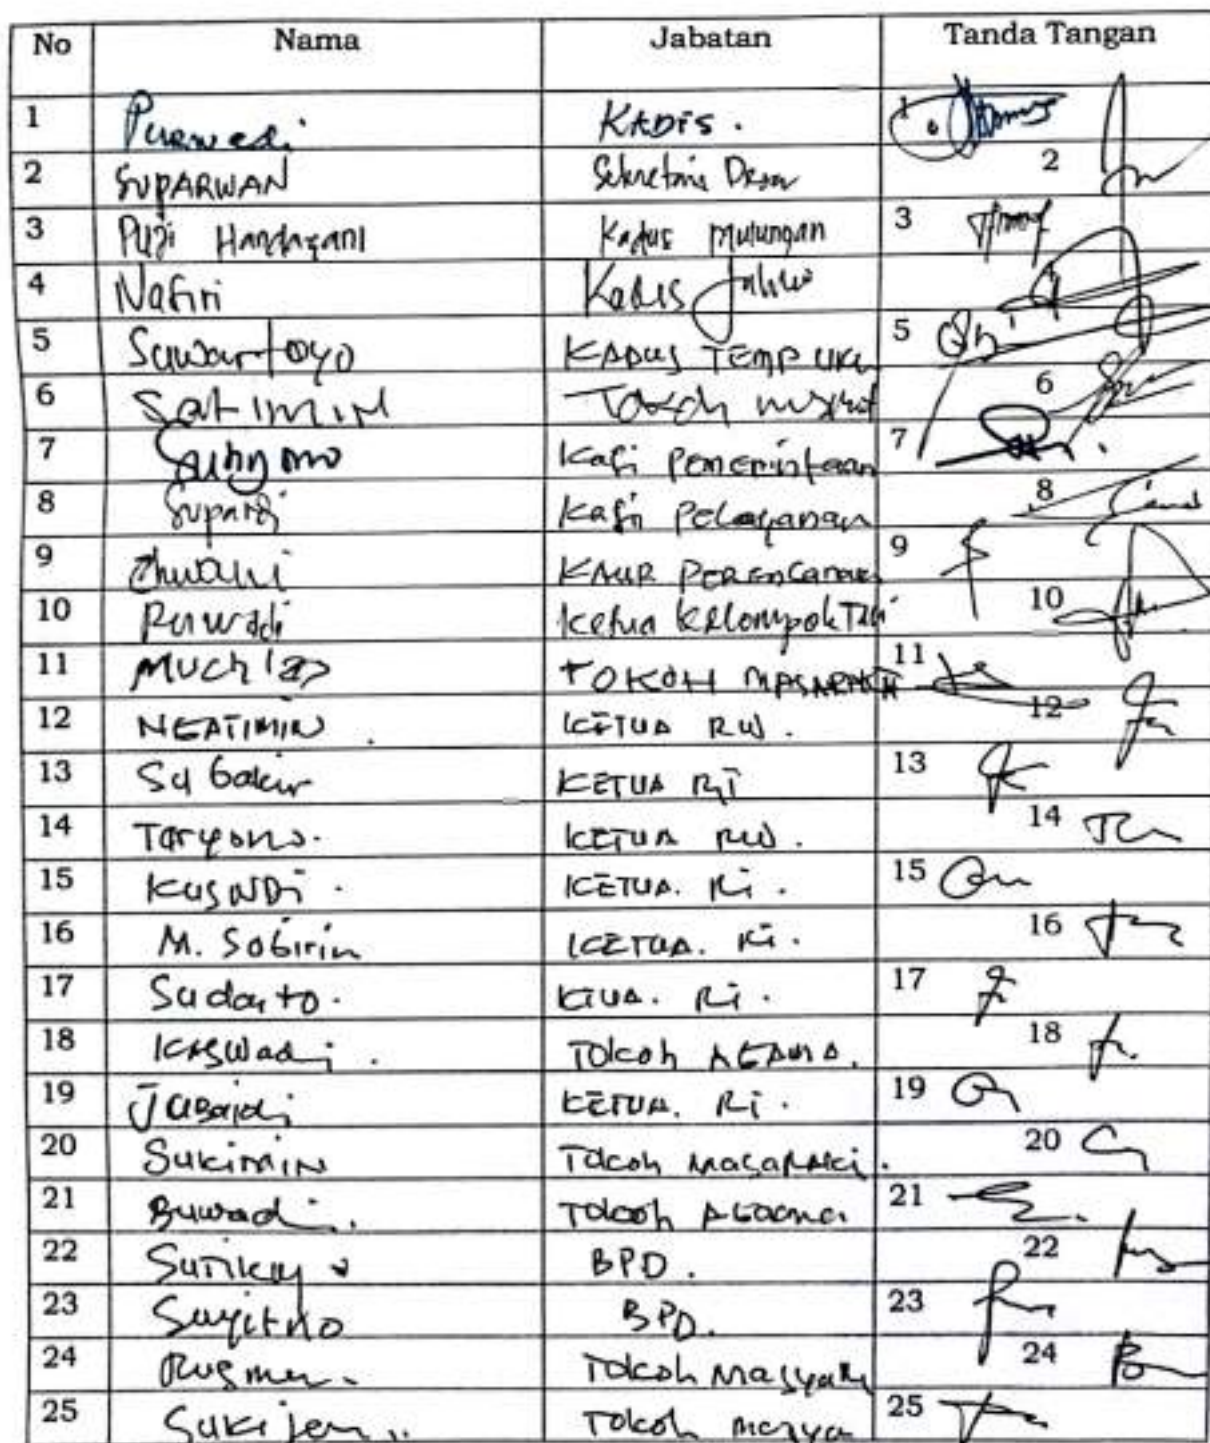 No Nama Jabatan Tanda Tangan
1 Purwadi KADIS. 1
2 SUPARWAN Sekretaris Desa 2
3 Puji Handayani Kadus Mulungan 3
4 Nafiri Kadus 4
5 Suwartoyo KADUS TEMPURU 5
6 Satimin Tokoh 6
7 Kasi Pemerintaan 7
8 Supardi Kasi Pelayanan 8
9 KAUR PERENCANAAN 9
10 Purwadi Ketua Kelompok Tani 10
11 TOKOH MASARAKAT 11
12 NGATIMIN. KETUA RW. 12
13 Subakir KETUA RT 13
14 Taryono. KETUA RW. 14
15 KUSNDi. KETUA. RT. 15
16 M. Sobirin KETUA. RT. 16
17 Sudarto. KTUA. RT. 17
18 KASWadi. Tokoh AGAMA. 18
19 Jubaidi KETUA. RT. 19
20 Sukimin Tokoh Masaraki. 20
21 Buwadi. Tokoh AGama. 21
22 BPD. 22
23 Suyitno BPD. 23
24 Tokoh Masyak 24
25 Sukijan.. Tokoh masya 25